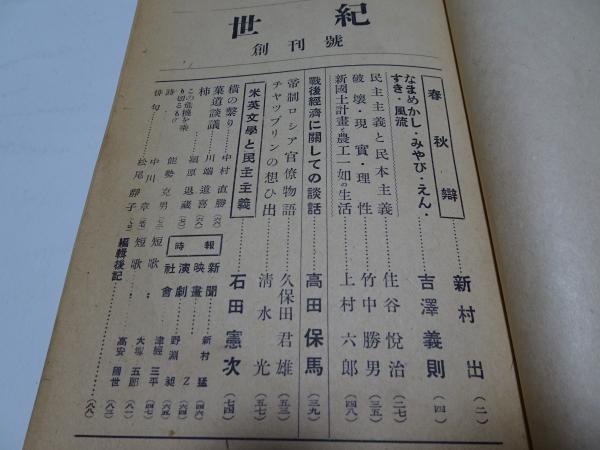 世紀
創刊號
春秋辯……新村出(二)
なまめかし・みやび・えん・すき・風流……吉澤義則(四)
民主主義と民本主義……住谷悦治(二七)
破壞・現實・理性……竹中勝男(三五)
新國土計畫と農工一如の生活……上村六郎(四八)
戰後經濟に關しての談話……高田保馬(三九)
帝制ロシア官僚物語……久保田君雄(五三)
チャップリンの想ひ出……清水光(五七)
米英文學と民主主義……石田憲次(七四)
橫の繫り……中村直勝
菓道談議……川端道喜
柿……福原退藏
この危機を乘り切るもの
詩……能勢克男
俳句
中川章
松尾靜子
時報
新聞……新村猛
映畫……Z
演劇……野淵昶
社會
短歌……津經三平
短歌……大塚五郎
編輯後記……高安國世(八八)